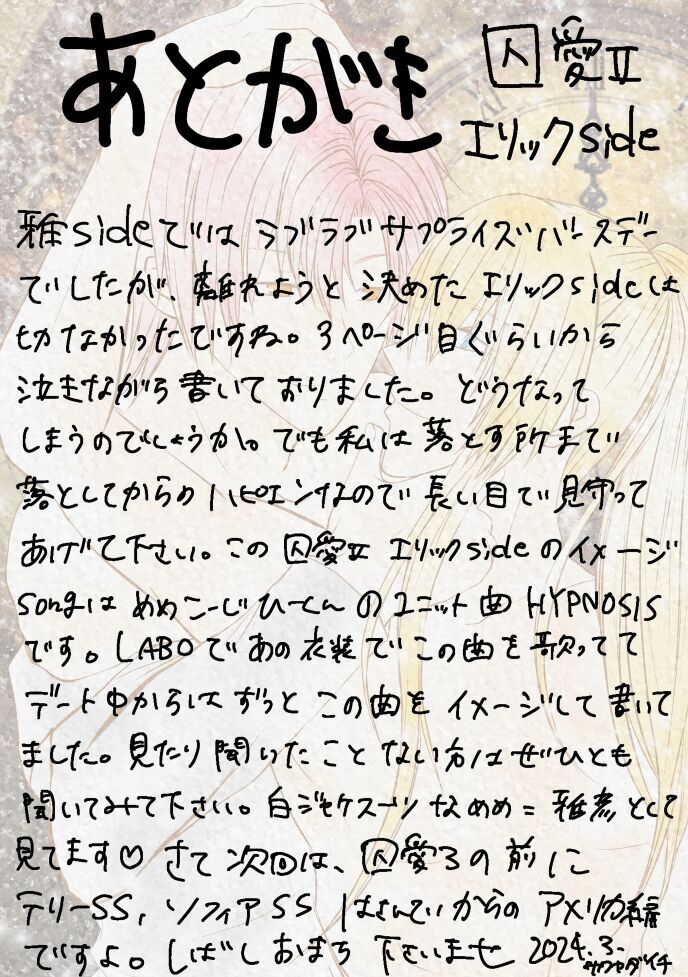 あとがき
囚愛Ⅱ
エリックside
雅sideではラブラブサプライズバースデー
でしたが、離れようと決めたエリックsideは
切なかったですね。3ページ目ぐらいから
泣きながら書いておりました。どうなって
しまうのでしょうか。でも私は落とす所まで
落としてからのハピエンなので長い目で見守って
あげて下さい。この囚愛Ⅱエリックsideのイメージ
songはめめこーじひーくんのユニット曲HYPNOSIS
です。LABOであの衣装でこの曲を歌ってて
デート中からはずっとこの曲をイメージして書いて
ました。見たり聞いたことない方はぜひとも
聞いてみて下さい。白ジャケスーツなめめ=雅彦として
見てます♡さて次回は、囚愛3の前に
テリーSS,ソフィアSSはさんでいからのアメリカ編
ですよ。しばしおまち下さいませ 2024.3.